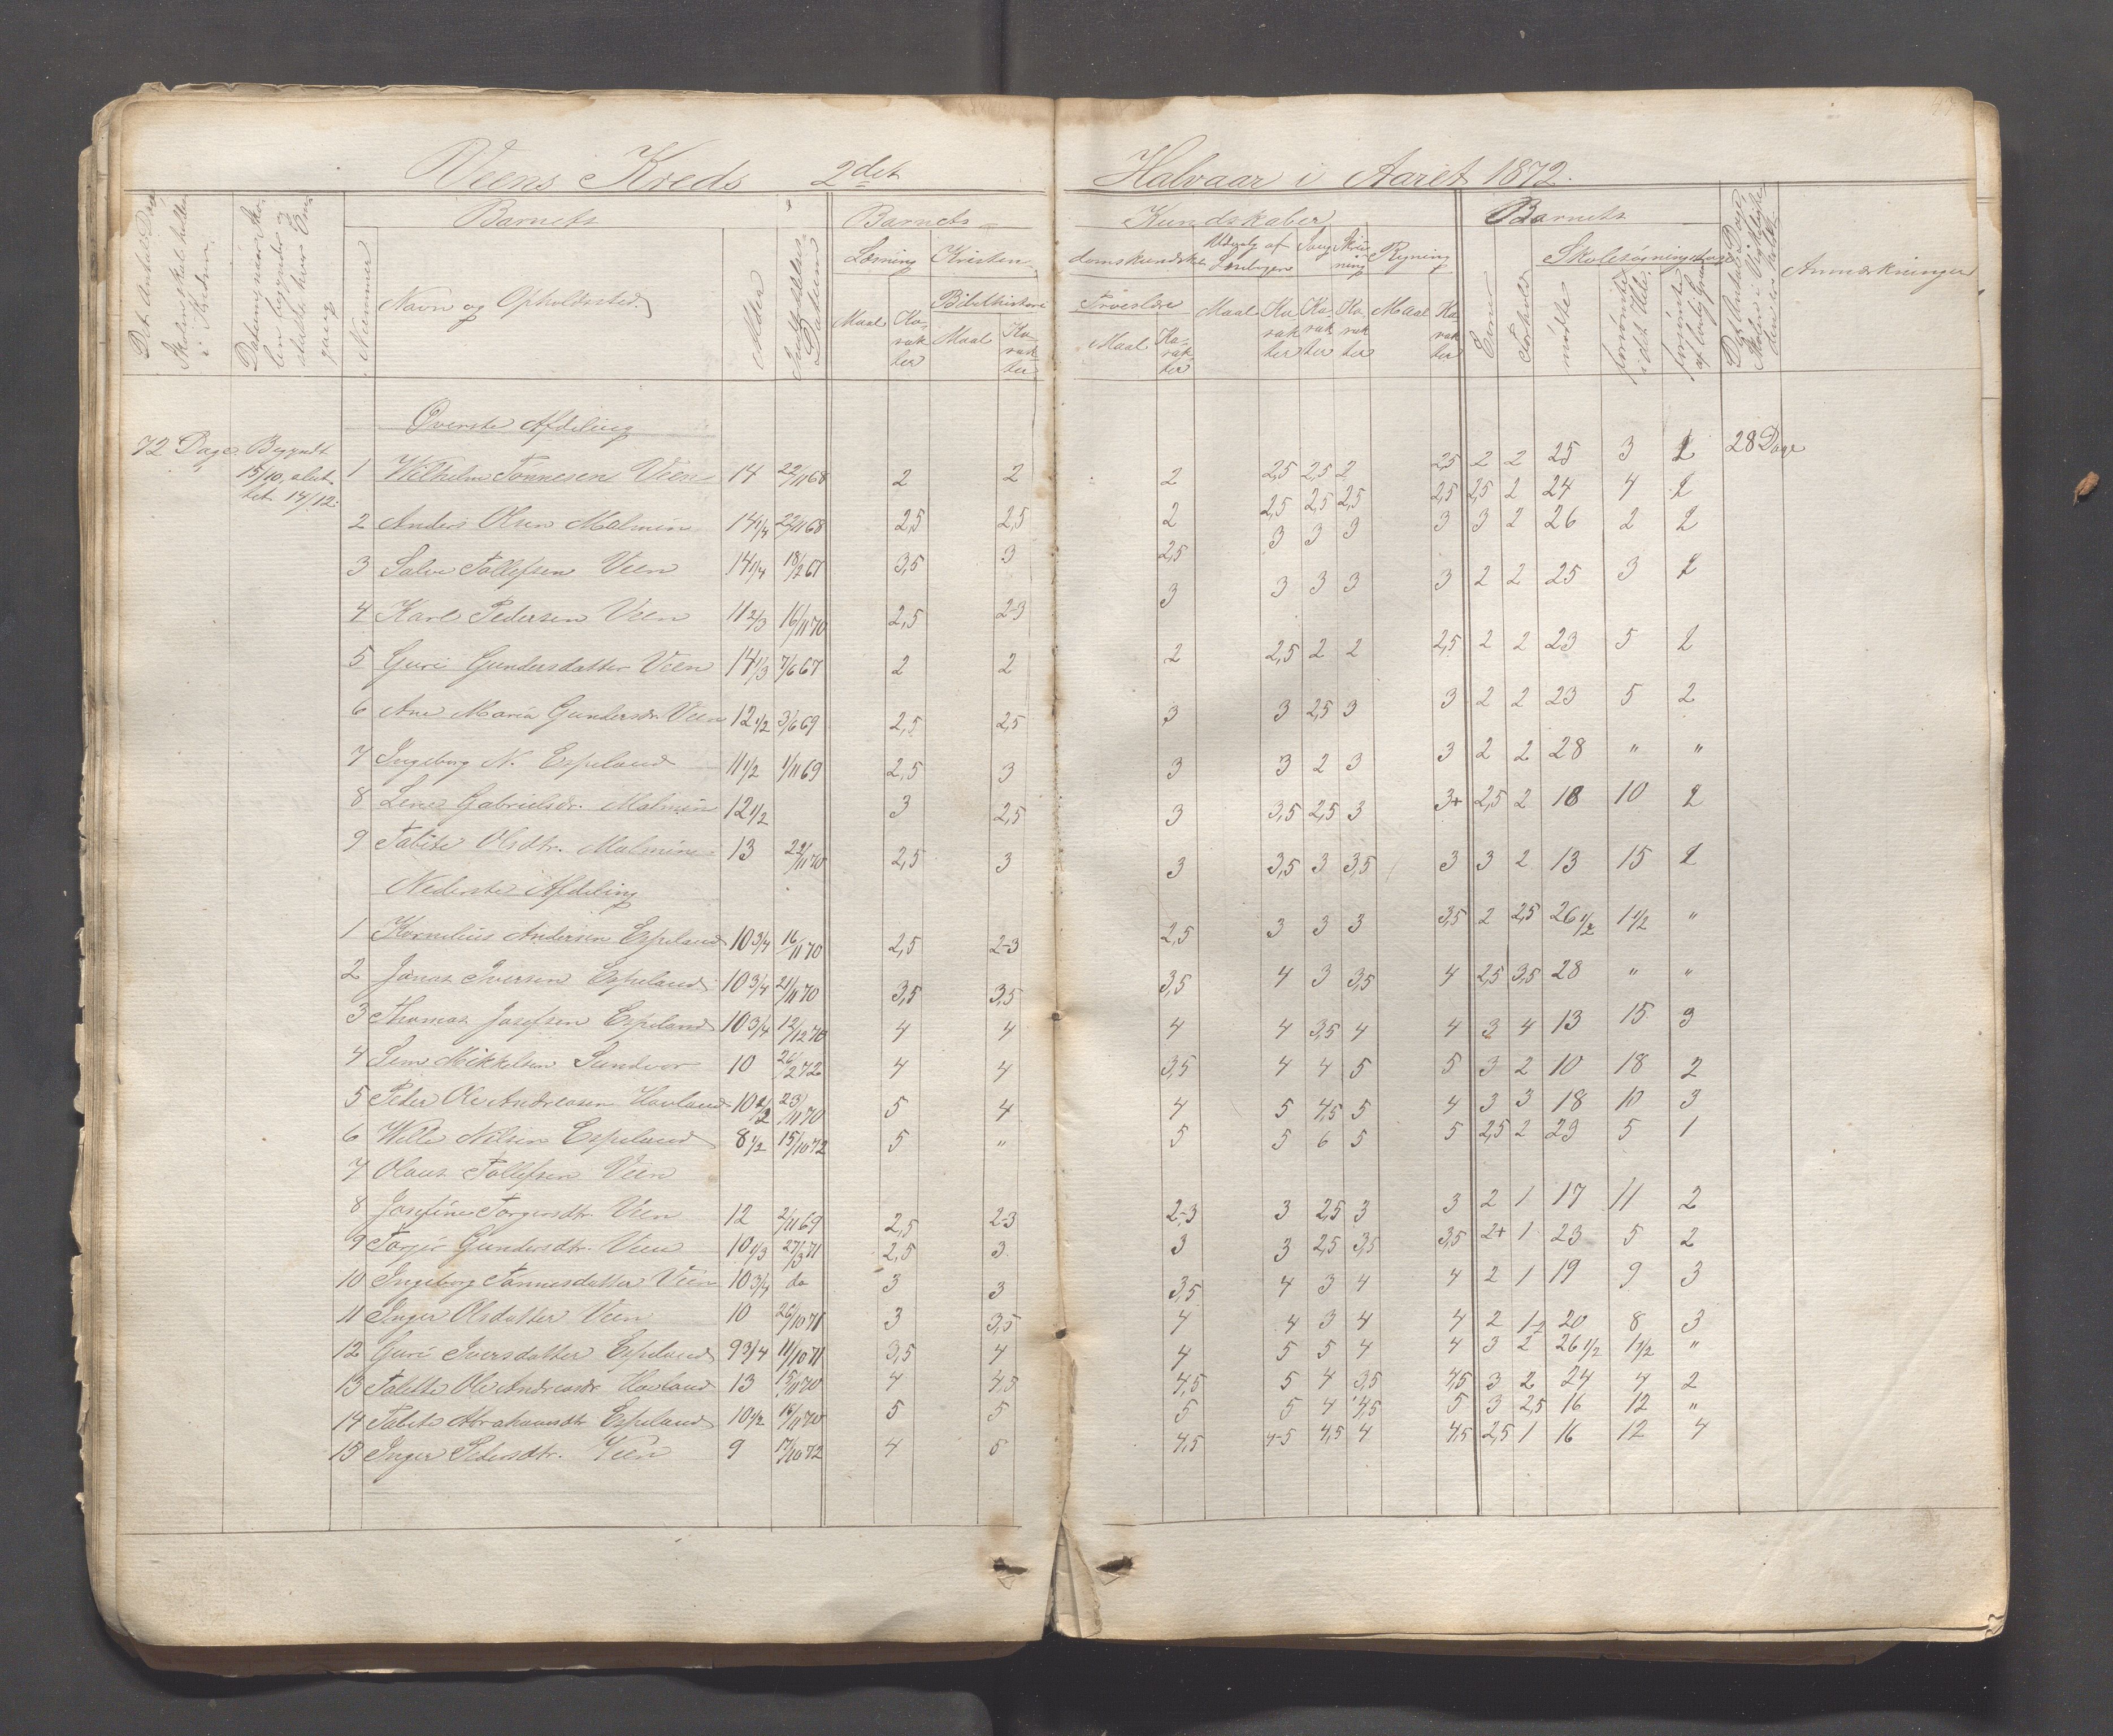 Veens Kreds 2det Halvaar i Aaret 1872.
Barnets Barnets Kundskaber Barnets
Læsning Kristen domskundskab Udvalg af Læsebogen Sang Skrivning Regning Skolesøgningsdage
Bibelhistorie Troeslære
Det Antal Dage Skolen skal holdes i Kredsen.
Datum, naar Skolen begyndes og sluttes hver Omgang
Nummer Navn og Opholdssted. Alder Indtrædelses-Datum
Maal Karakter Maal Karakter Maal Karakter Maal Karakter Karakter Karakter Maal Karakter
Evne Forhold mødte forsømte i det Hele forsømte af lovlig Grund
Det Antal Dage Skolen i Virkeligheden er holdt
Anmærkninger
72 Dage. Begyndt 15/10, sluttet 14/12.
28 Dage
Øverste Afdeling
1 Wilhelm Tønnesen Veen 14 22/11 68 2 2 2 2,5 2,5 2 2,5 2 2 25 3 2
2 Anders Olsen Malmin 14 1/4 22/11 68 2,5 2,5 2 2,5 2,5 2,5 2,5 2,5 2 24 4 2
3 Salve Tollefsen Veen 14 1/4 18/2 67 3,5 3 2,5 3 3 3 3 3 2 26 2 2
4 Karl Pedersen Veen 11 2/3 16/11 70 2,5 2-3 3 3 3 3 3 2 2 25 3 2
5 Guri Gundersdatter Veen 14 1/3 7/6 67 2 2 2 2,5 2 2 2,5 2 2 23 5 2
6 Ane Maria Gundersdr. Veen 12 1/2 3/6 69 2,5 2,5 3 3 2,5 3 3 2 2 23 5 2
7 Ingeborg N. Espeland 11 1/2 1/11 69 2,5 3 3 3 2 3 3 2 2 28 " "
8 Lene Gabrielsdr. Malmin 12 1/2 3 2,5 3 3,5 2,5 3 3+ 2,5 2 18 10 2
9 Tabite Olsdtr. Malmin 13 22/11 70 2,5 3 3 3,5 3 3,5 3 3 2 13 15 2
Nederste Afdeling
1 Kornelius Andersen Espeland 10 3/4 16/11 70 2,5 2-3 2,5 3 3 3 3,5 2 2,5 26 1/2 1 1/2 "
2 Jonas Iversen Espeland 10 3/4 21/11 70 3,5 3,5 3,5 4 3 3,5 4 2,5 3,5 28 " "
3 Thomas Josefsen Espeland 10 3/4 12/12 70 4 4 4 4 3,5 4 4 3 4 13 15 3
4 Sem Mikkelsen Sandvor 10 26/2 72 4 4 3,5 4 4 5 5 3 2 10 18 2
5 Peder Ole Andreasen Havland 10 1/2 23/11 70 5 4 4 5 4,5 5 4 3 3 18 10 3
6 Wille Nilsen Espeland 8 1/2 15/10 72 5 " 5 5 6 5 5 2,5 2 23 5 1
7 Olaus Tollefsen Veen
8 Josefine Torgersdtr. Veen 12 2/11 69 2,5 2-3 2-3 3 2,5 3 3 2 1 17 11 2
9 Torjer Gundersdtr. Veen 10 1/3 27/3 71 2,5 3 3 3 2,5 3,5 3,5 2+ 1 23 5 2
10 Ingeborg Tønnesdatter Veen 10 3/4 do 3 3 3,5 4 3 4 4 2 1 19 9 3
11 Inger Olsdatter Veen 10 26/10 71 3 3,5 4 4 3 4 4 2 1-2 20 8 3
12 Guri Iversdatter Espeland 9 3/4 11/10 71 3,5 4 4 5 5 4 4 3 2 26 1/2 1 1/2 "
13 Talette Ole Andreasdr. Havland 13 15/11 70 4 4,5 4,5 5 4 3,5 4,5 3 2 24 4 2
14 Tabite Abrahamsdtr Espeland 10 1/2 16/11 70 5 5 5 5 4 4,5 5 3 2,5 16 12 "
15 Inger Pedersdtr. Veen 9 17/10 72 4 5 4,5 4-5 4,5 4 4,5 2,5 1 16 12 4